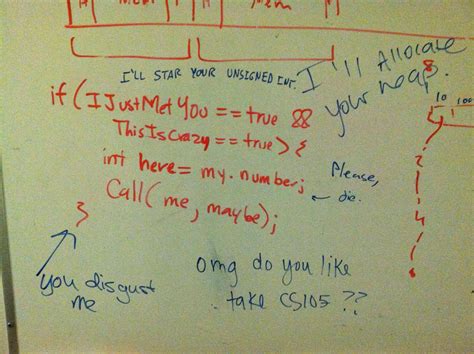 H Mem H Mem H
I'LL STAR YOUR UNSIGNED INT.
I'll Allocate
your heap.
8
10 100
if (IJustMetYou == true &&
ThisIsCrazy == true) {
int here = my.number;
Call(me, maybe);
}
Please,
← die.
you disgust
me
omg do you like
take CS105 ??